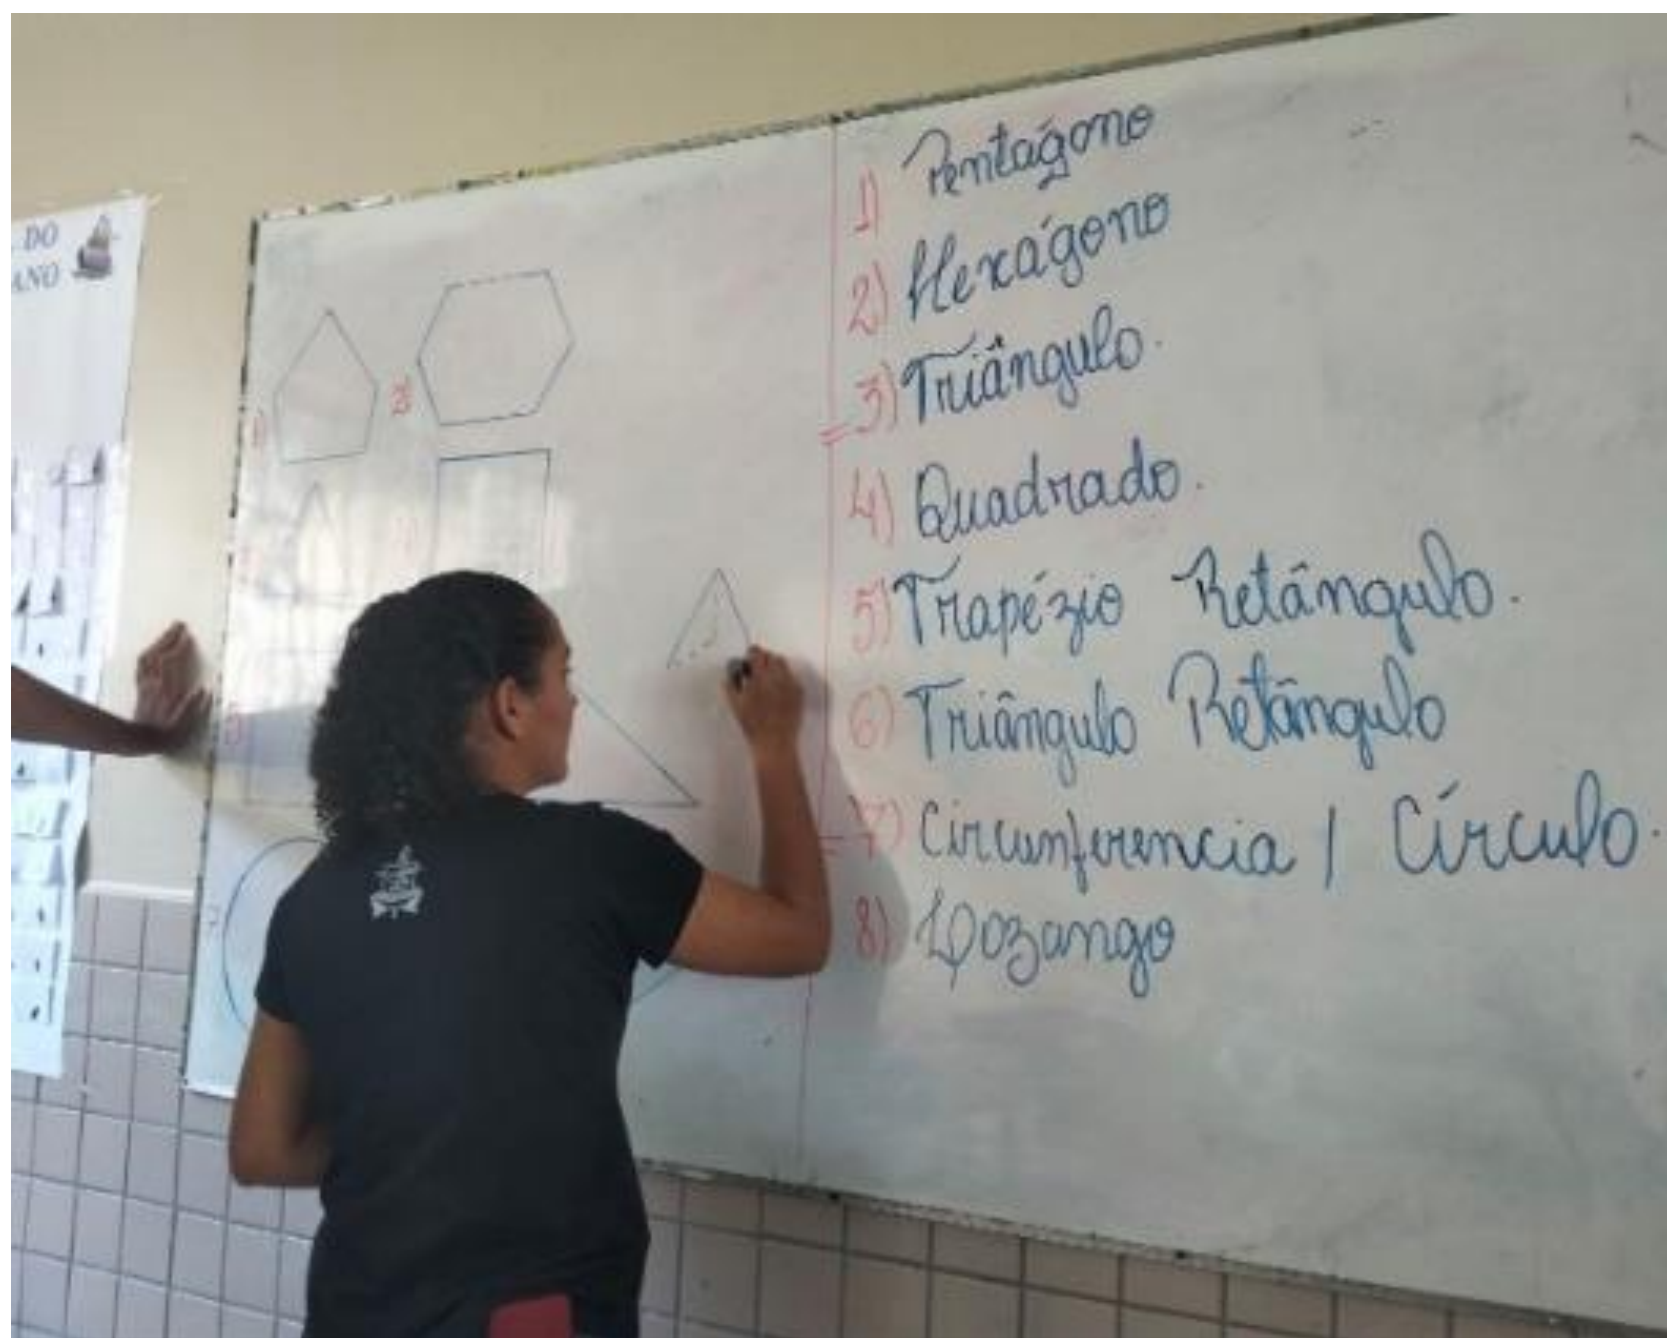 DO
ANO
1) Pentágono
2) Hexágono
3) Triângulo.
4) Quadrado.
5) Trapézio Retângulo.
6) Triângulo Retângulo
7) Circunferencia / Círculo.
8) Lozango
1)
2)